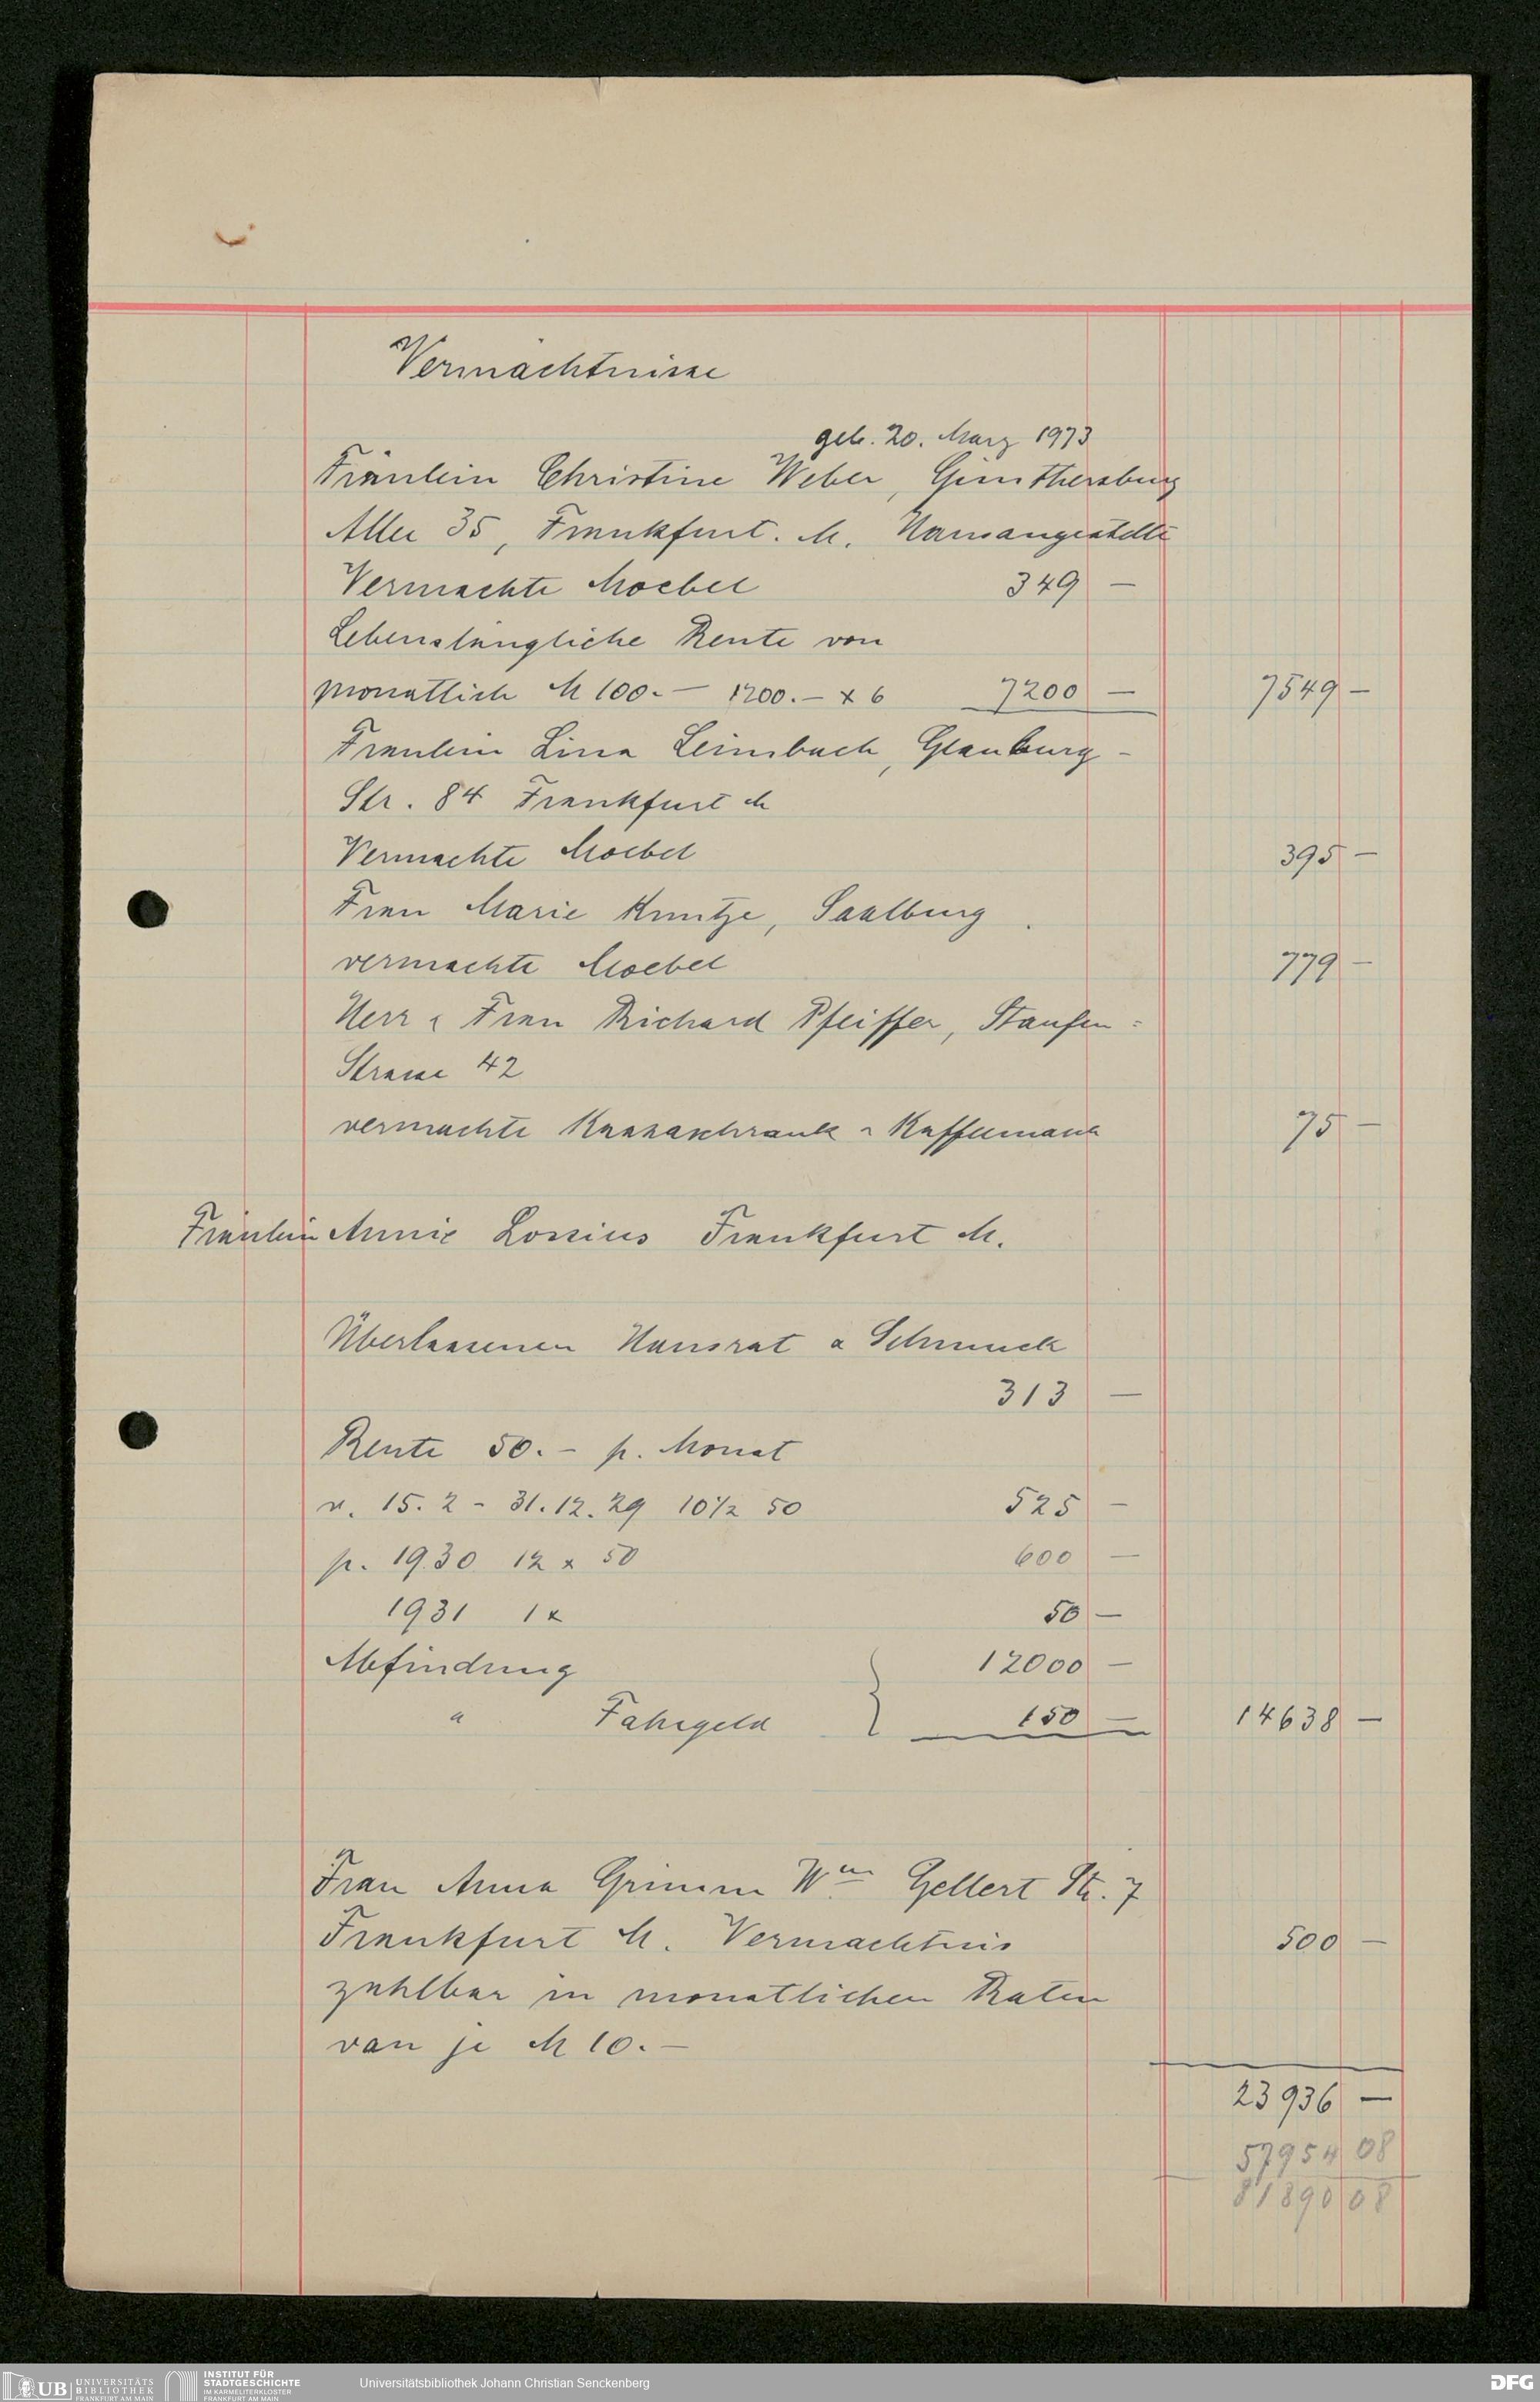 Vermächtnisse
geb. 20. März 1973
Fräulein Christine Weber, Günthersburg
Allee 35, Frankfurt. M. Hausangestellte
Vermachte Moebel 349 —
Lebenslängliche Rente von
monatlich M 100.— 1200.— x 6 7200 — 7549 —
Fräulein Lina Leimbach, Glauburg -
Str. 84 Frankfurt M
Vermachte Moebel 395 —
Frau Marie Kuntze, Saalburg .
vermachte Moebel 779 —
Herr & Frau Richard Pfeiffer, Staufen =
Strasse 42
vermachte Kassaschrank & Kaffeemasch 75 —
Fräulein Annie Lossius Frankfurt M.
Überlassenen Hausrat & Schmuck
313 —
Rente 50.— p. Monat
v. 15. 2 - 31. 12. 29 10½ 50 525 —
p. 1930 12 x 50 600 —
1931 1 x 50 —
Abfindung } 12000 —
" Fahrgeld 150 — 14638 —
Frau Anna Grimm Wwe Gellert Str. 7
Frankfurt M. Vermächtnis 500 —
zahlbar in monatlichen Raten
von je M 10.—
23936 —
57954 08
81890 08
UB UNIVERSITÄTS
BIBLIOTHEK
FRANKFURT AM MAIN
INSTITUT FÜR
STADTGESCHICHTE
IM KARMELITERKLOSTER
FRANKFURT AM MAIN
Universitätsbibliothek Johann Christian Senckenberg
DFG